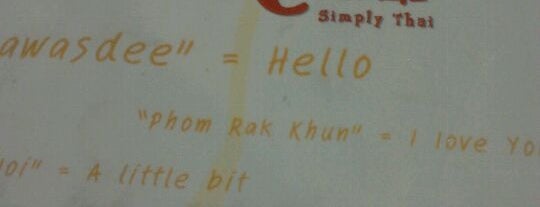 Simply Thai
awasdee" = Hello
"Phom Rak Khun" = I love Yo
oi" = A little bit